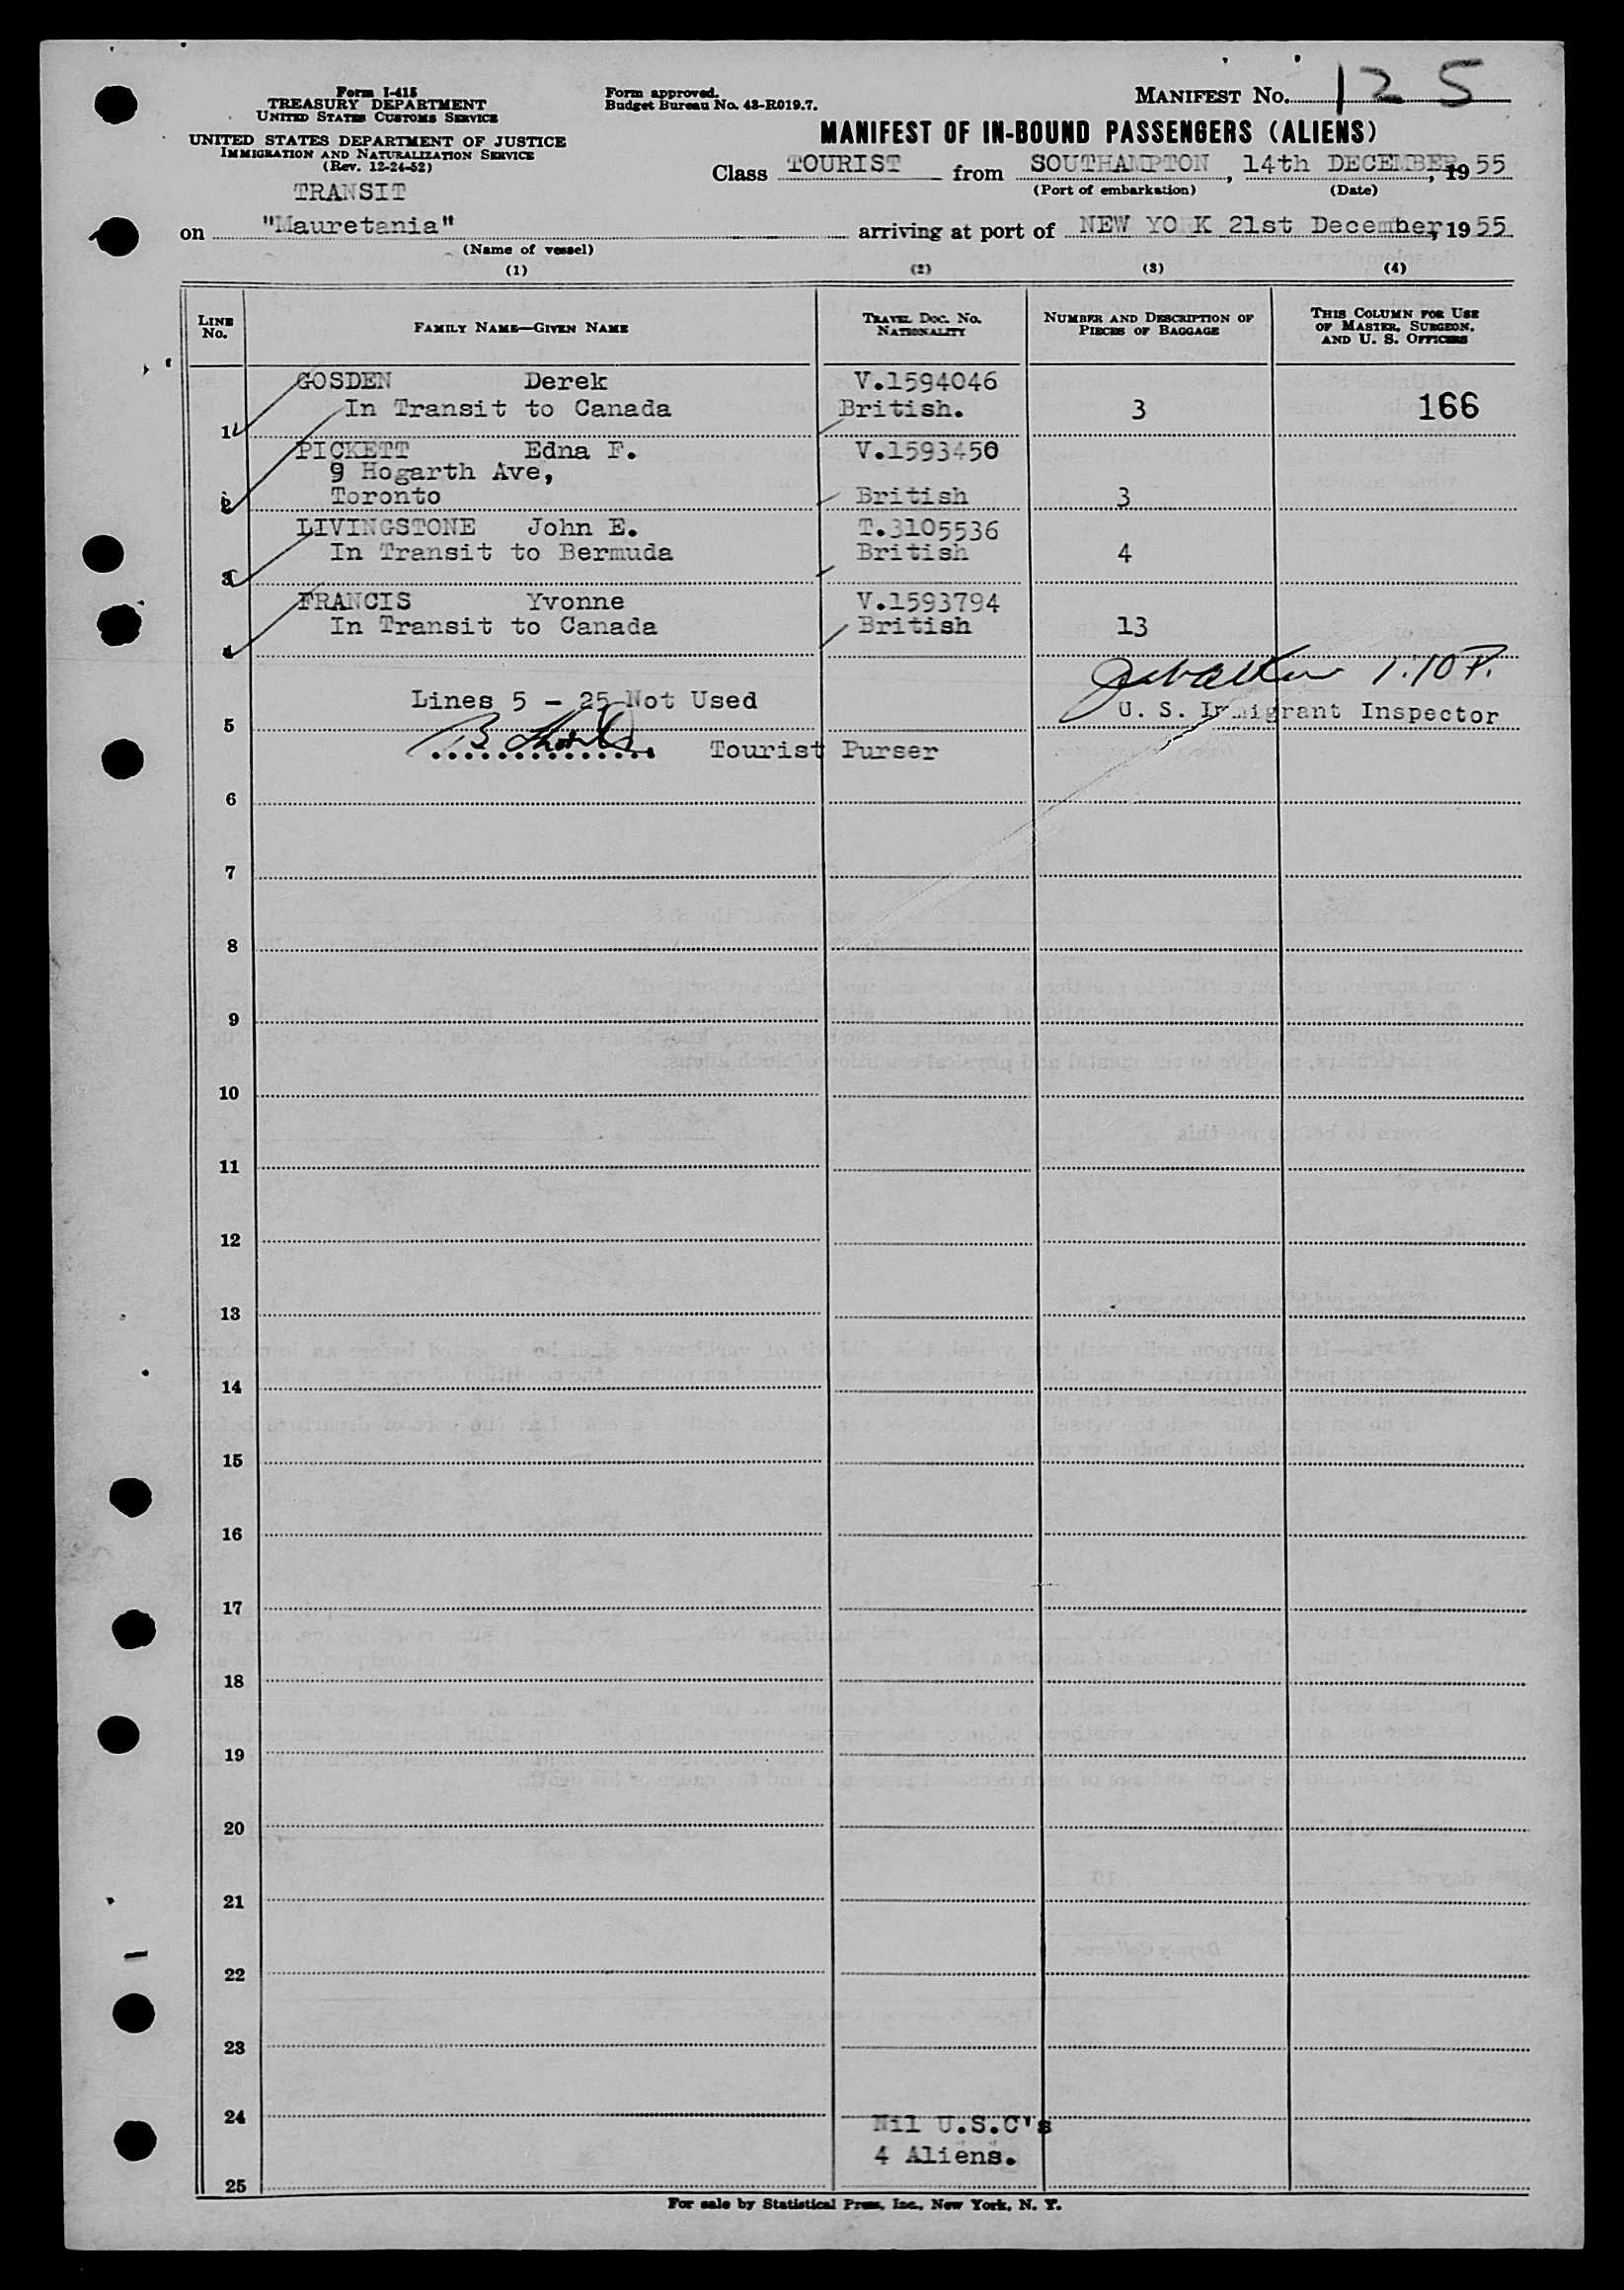 Form I-415
TREASURY DEPARTMENT
UNITED STATES CUSTOMS SERVICE
UNITED STATES DEPARTMENT OF JUSTICE
IMMIGRATION AND NATURALIZATION SERVICE
(Rev. 12-24-52)
TRANSIT
Form approved.
Budget Bureau No. 43-R019.7.
MANIFEST No. 125
MANIFEST OF IN-BOUND PASSENGERS (ALIENS)
Class TOURIST from SOUTHAMPTON, 14th DECEMBER, 1955
(Port of embarkation) (Date)
on "Mauretania" arriving at port of NEW YO K 21st December, 1955
(Name of vessel)
(1) (2) (3) (4)
LINE No. FAMILY NAME—GIVEN NAME TRAVEL DOC. NO. NATIONALITY NUMBER AND DESCRIPTION OF PIECES OF BAGGAGE THIS COLUMN FOR USE OF MASTER, SURGEON, AND U. S. OFFICERS
GOSDEN Derek V.1594046
In Transit to Canada British. 3 166
1
PICKETT Edna F. V.1593450
9 Hogarth Ave,
Toronto British 3
2
LIVINGSTONE John E. T.3105536
In Transit to Bermuda British 4
3
FRANCIS Yvonne V.1593794
In Transit to Canada British 13
4
1.10 P.
Lines 5 - 25 Not Used U. S. Immigrant Inspector
5
Tourist Purser
6
7
8
9
10
11
12
13
14
15
16
17
18
19
20
21
22
23
24
Nil U.S.C's
4 Aliens.
25
For sale by Statistical Press, Inc., New York, N. Y.